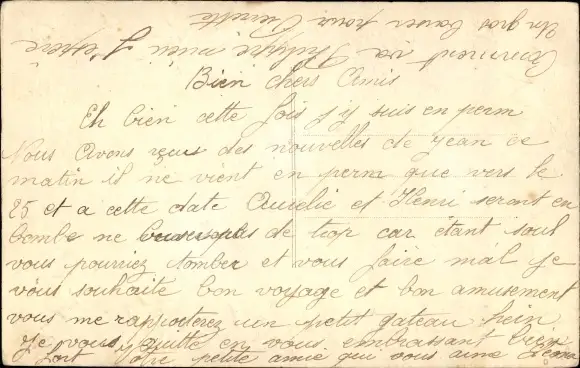 Bien chers Amis
Eh bien cette fois j'y suis en perm
Nous avons reçus des nouvelles de Jean ce
matin il ne vient en perm que vers le
25 et a cette date Aurelie et Henri seront en
bombe ne pas de trop car étant soul
vous pourriez tomber et vous faire mal Je
vous souhaite bon voyage et bon amusement
vous me rapporterez un petit gateau hein
Je vous quitte en vous embrassant bien
fort Votre petite amie qui vous aime
Comment va Philippe mieu J'espère
Un gros baiser pour